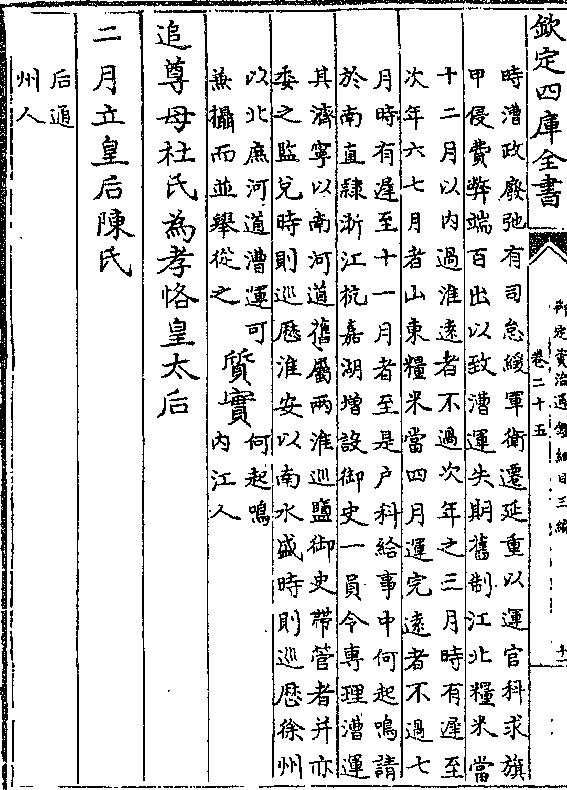 欽定四庫全書
御定資治通鑑綱目三編
卷二十五
十一
時漕政廢弛有司怠緩軍衛遷延重以運官科求旗
甲侵費弊端百出以致漕運失期舊制江北糧米當
十二月以内過淮遠者不過次年之三月時有遲至
次年六七月者山東糧米當四月運完遠者不過七
月時有遲至十一月者至是户科給事中何起鳴請
於南直隸浙江杭嘉湖增設御史一員令專理漕運
其濟寧以南河道舊屬兩淮巡鹽御史帶管者并亦
委之監兑時則巡歴淮安以南水盛時則巡歴徐州
以北庶河道漕運可
兼攝而並舉從之
質實
何起鳴
内江人
追尊母杜氏為孝恪皇太后
二月立皇后陳氏
后通
州人